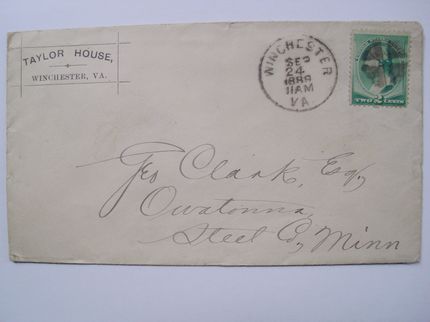 TAYLOR HOUSE,
WINCHESTER, VA.
WINCHESTER
SEP
24
1889
11AM
VA.
TWO 2 CENTS
Geo Clark, Esq,
Owatonna
Steel Co, Minn